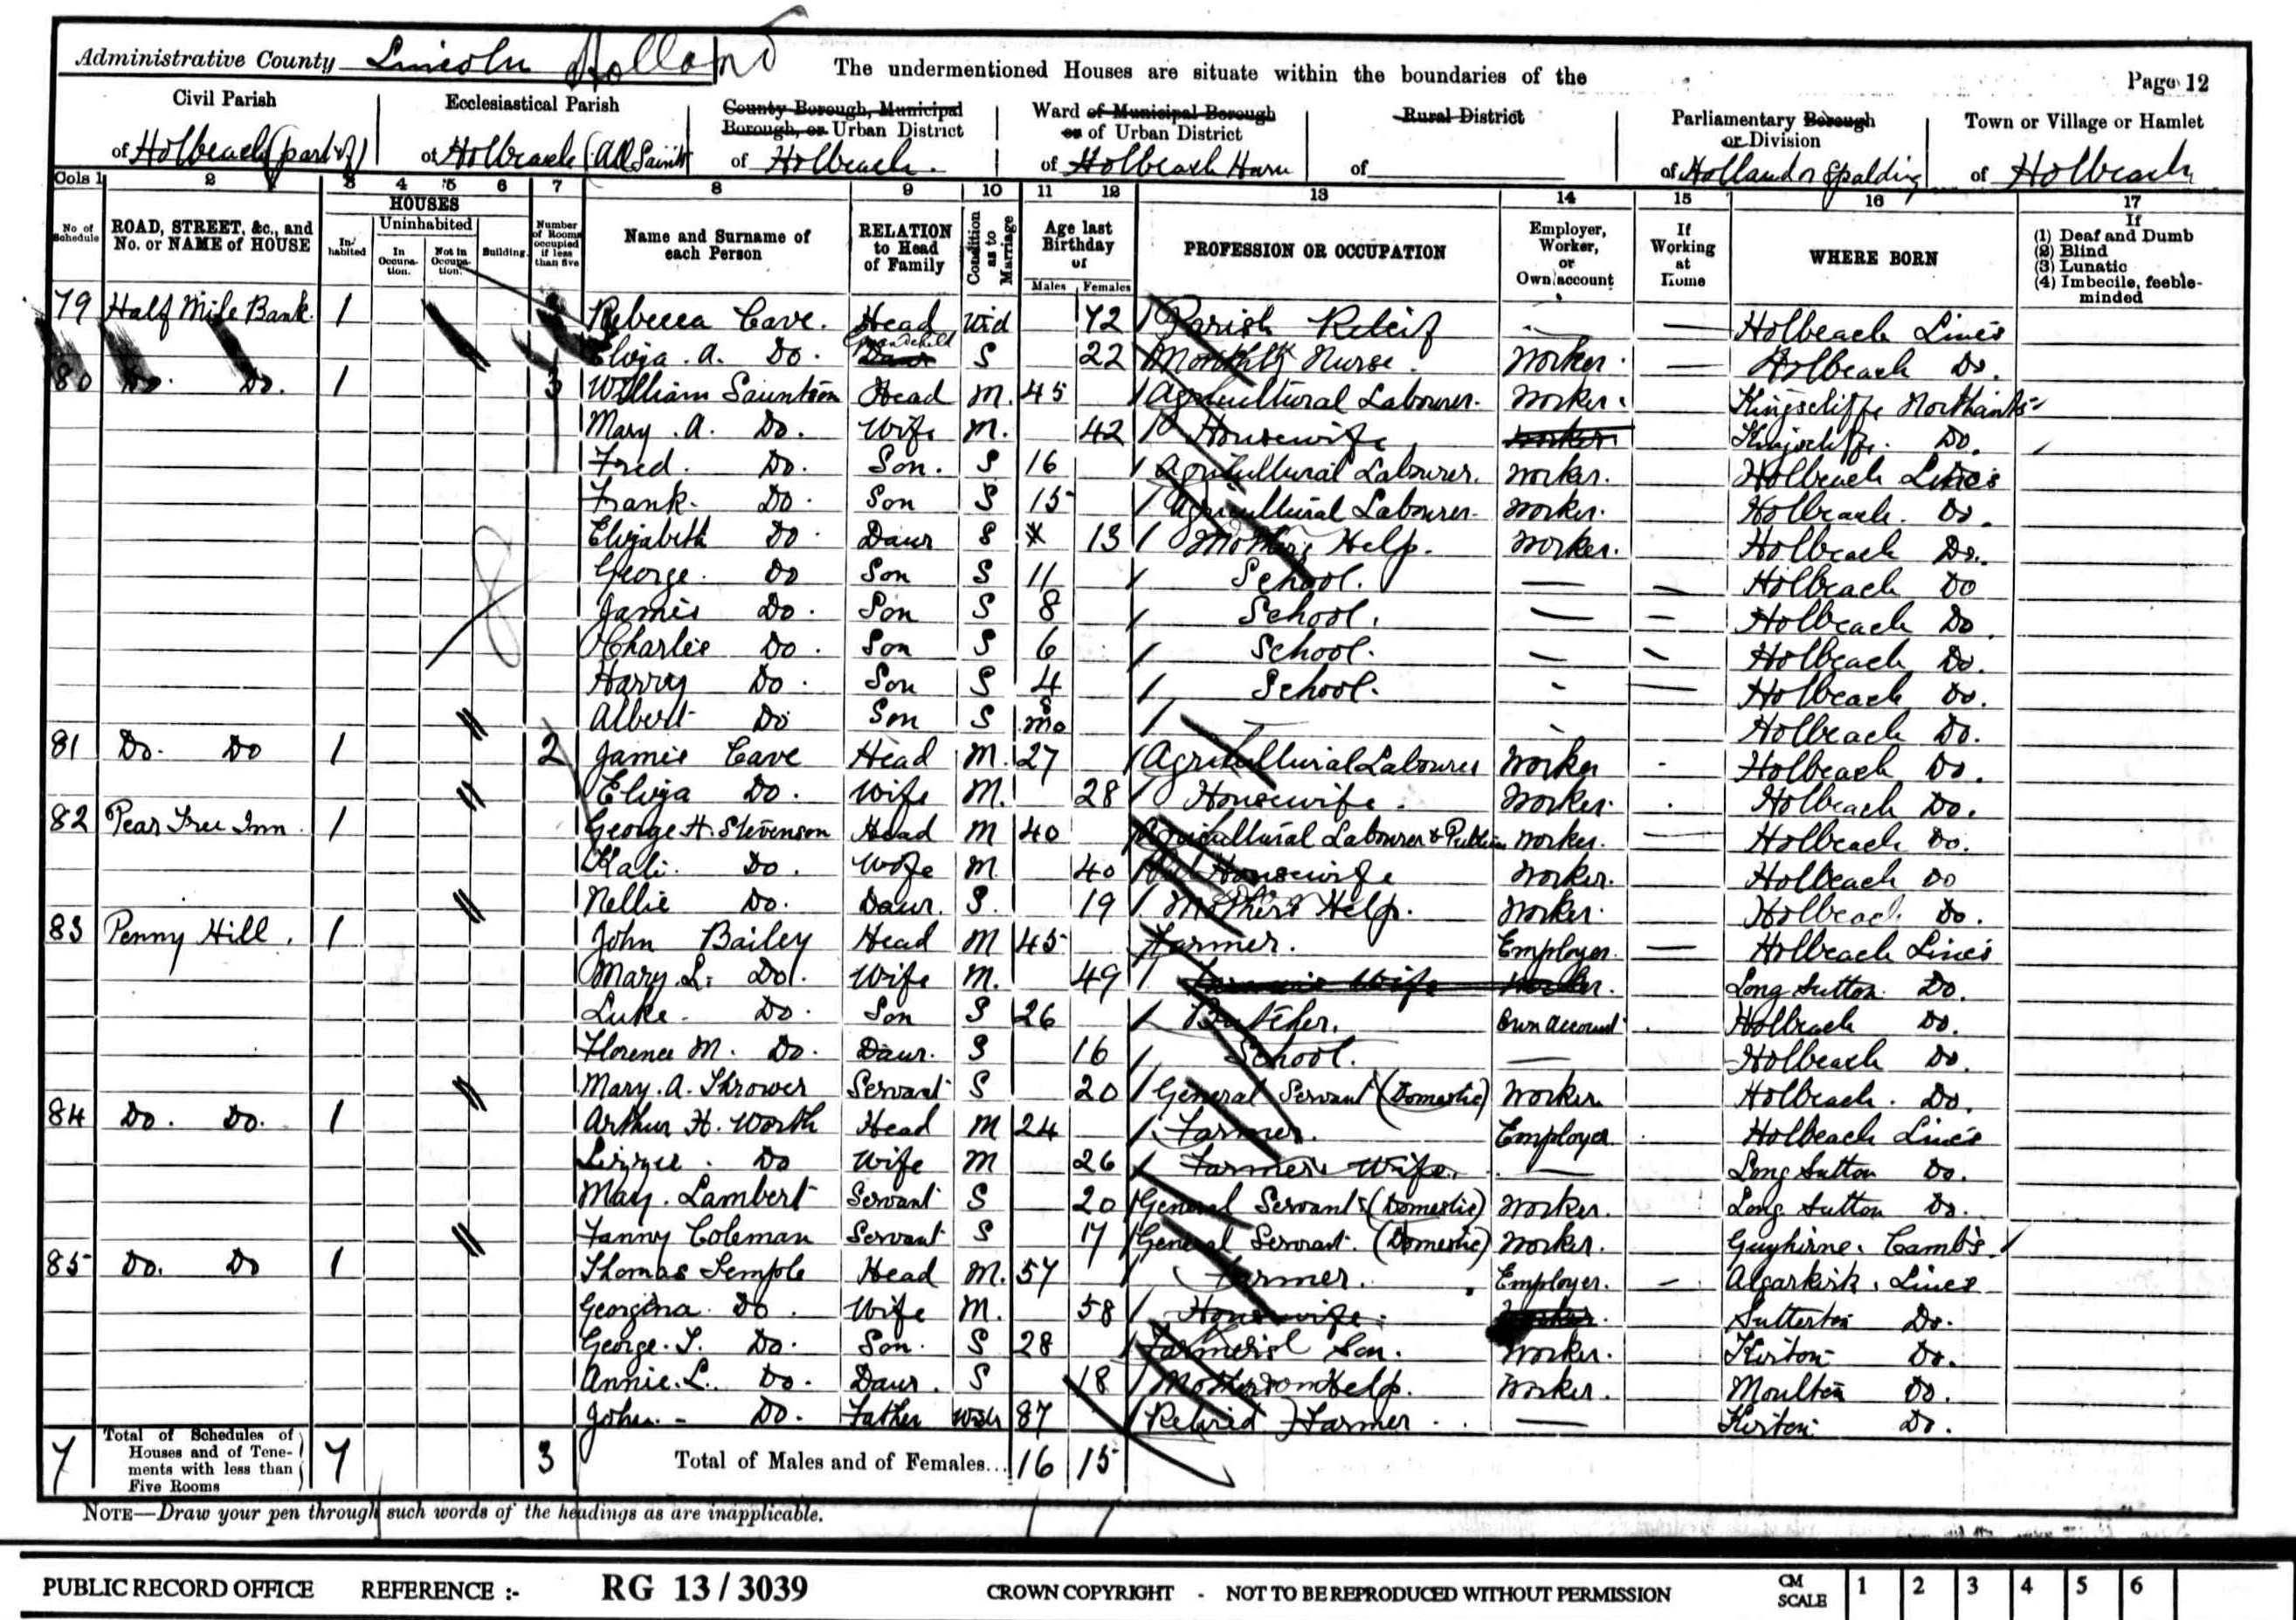 Administrative County Lincoln Holland The undermentioned Houses are situate within the boundaries of the Page 12
Civil Parish Ecclesiastical Parish County Borough, Municipal Borough, or Urban District Ward of Municipal Borough or of Urban District Rural District Parliamentary Borough or Division Town or Village or Hamlet
of Holbeach (part of) of Holbeach (All Saints of Holbeach. of Holbeach Hurn of of Holland or Spalding of Holbeach
Cols 1 2 3 4 5 6 7 8 9 10 11 12 13 14 15 16 17
No of Schedule ROAD, STREET, &c., and No. or NAME of HOUSE HOUSES In-habited Uninhabited In Occupa-tion. Not in Occupa-tion. Building Number of Rooms occupied if less than five Name and Surname of each Person RELATION to Head of Family Condition as to Marriage Age last Birthday of Males Females PROFESSION OR OCCUPATION Employer, Worker, or Own account If Working at Home WHERE BORN If (1) Deaf and Dumb (2) Blind (3) Lunatic (4) Imbecile, feeble-minded
79 Half Mile Bank. 1 Rebecca Cave. Head Wid 72 Parish Releif — — Holbeach Lincs
Eliza. A. Do. Grandchild Daur S 22 Monthly Nurse. Worker. — Holbeach Do.
80 Do. Do. 1 3 William Saunton Head M. 45 Agricultural Labourer. Worker. Kingscliffe Northants
Mary. A. Do. Wife M. 42 Housewife Worker Kingscliffe. Do.
Fred. Do. Son. S 16 Agricultural Labourer. Worker. Holbeach Lincs
Frank. Do. Son S 15 Agricultural Labourer. Worker. Holbeach. Do.
Elizabeth Do. Daur S 13 Mother's Help. Worker. Holbeach Do.
George. Do Son S 11 School. — — Holbeach Do
James Do. Son S 8 School. — — Holbeach Do.
Charlie Do. Son S 6 School. — — Holbeach Do.
Harry Do. Son S 4 School. - — Holbeach Do.
Albert Do Son S 8 mo - Holbeach Do.
81 Do. Do 1 2 James Cave Head M. 27 Agricultural Labourer Worker - Holbeach Do.
Eliza Do. Wife M. 28 Housewife. Worker. Holbeach Do.
82 Pear Tree Inn. 1 George H. Stevenson Head M 40 Agricultural Labourer & Publican Worker. — Holbeach Do.
Do. Wife M. 40 Housewife Worker. Holbeach Do
Nellie Do. Daur. S. 19 Mother's Help. Worker. Holbeach Do.
83 Penny Hill. 1 John Bailey Head M 45 Farmer. Employer. — Holbeach Lincs
Mary. L. Do. Wife M. 49 Farmer's Wife Worker. Long Sutton Do.
Luke. Do. Son S 26 Butcher. Own account Holbeach Do.
Florence M. Do. Daur. S 16 School. — Holbeach Do.
Mary. A. Thrower Servant S 20 General Servant (Domestic) Worker. Holbeach. Do.
84 Do. Do. 1 Arthur H. Worth Head M 24 Farmer. Employer. Holbeach Lincs
Lizzie. Do Wife M 26 Farmer's Wife. — Long Sutton Do.
May. Lambert Servant S 20 General Servant (Domestic) Worker. Long Sutton Do.
Fanny Coleman Servant S 17 General Servant. (Domestic) Worker. Guyhirne. Cambs.
85 Do. Do 1 Thomas Semple Head M. 57 Farmer. Employer. — Algarkirk. Lincs
Georgina Do. Wife M. 58 Housewife. Worker. Sutterton Do.
George. T. Do. Son. S 28 Farmer's Son. Worker. Kirton Do.
Annie. L. Do. Daur. S 18 Help. Worker. Moulton Do.
John. - Do. Father Widr 87 Retired Farmer. — Kirton Do.
7 Total of Schedules of Houses and of Tene-ments with less than Five Rooms 7 3 Total of Males and of Females... 16 15
NOTE—Draw your pen through such words of the headings as are inapplicable.
PUBLIC RECORD OFFICE REFERENCE :- RG 13 / 3039 CROWN COPYRIGHT - NOT TO BE REPRODUCED WITHOUT PERMISSION CM SCALE 1 2 3 4 5 6